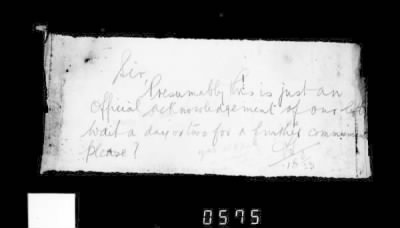 Sir,
Presumably this is just an
Official acknowledgement of our
Wait a day or two for a further
please?
0575